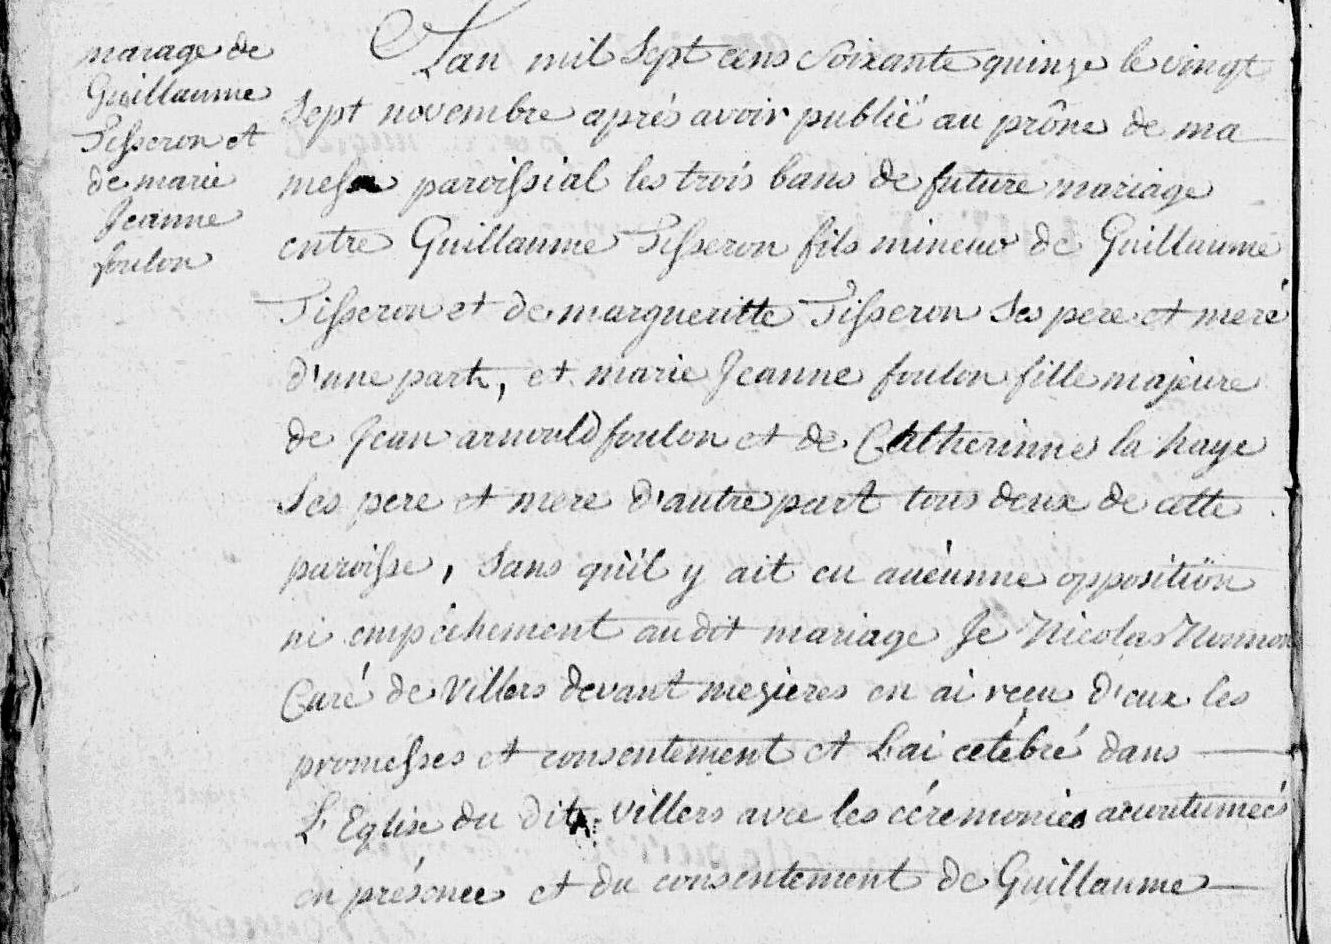 mariage de
Guillaume
Tisseron et
de marie
Jeanne
foulon
L'an mil Sept cens Soixante quinze le vingt
Sept novembre après avoir publié au prône de ma
messe paroissial les trois bans de future mariage
entre Guillaume Tisseron fils mineur de Guillaume
Tisseron et de margueritte Tisseron Ses pere et mere
d'une part, et marie Jeanne foulon fille majeure
de Jean arnould foulon et de Catherinne la haye
Ses pere et mere d'autre part tous deux de cette
paroisse, Sans qu'il y ait eu aucunne opposition
ni empêchement audit mariage Je Nicolas
Curé de Villers devant mezieres en ai reçu d'eux les
promesses et consentement et L'ai célébré dans
L'Eglise du dit villers avec les cérémonies acoutumées
en présence et du consentement de Guillaume